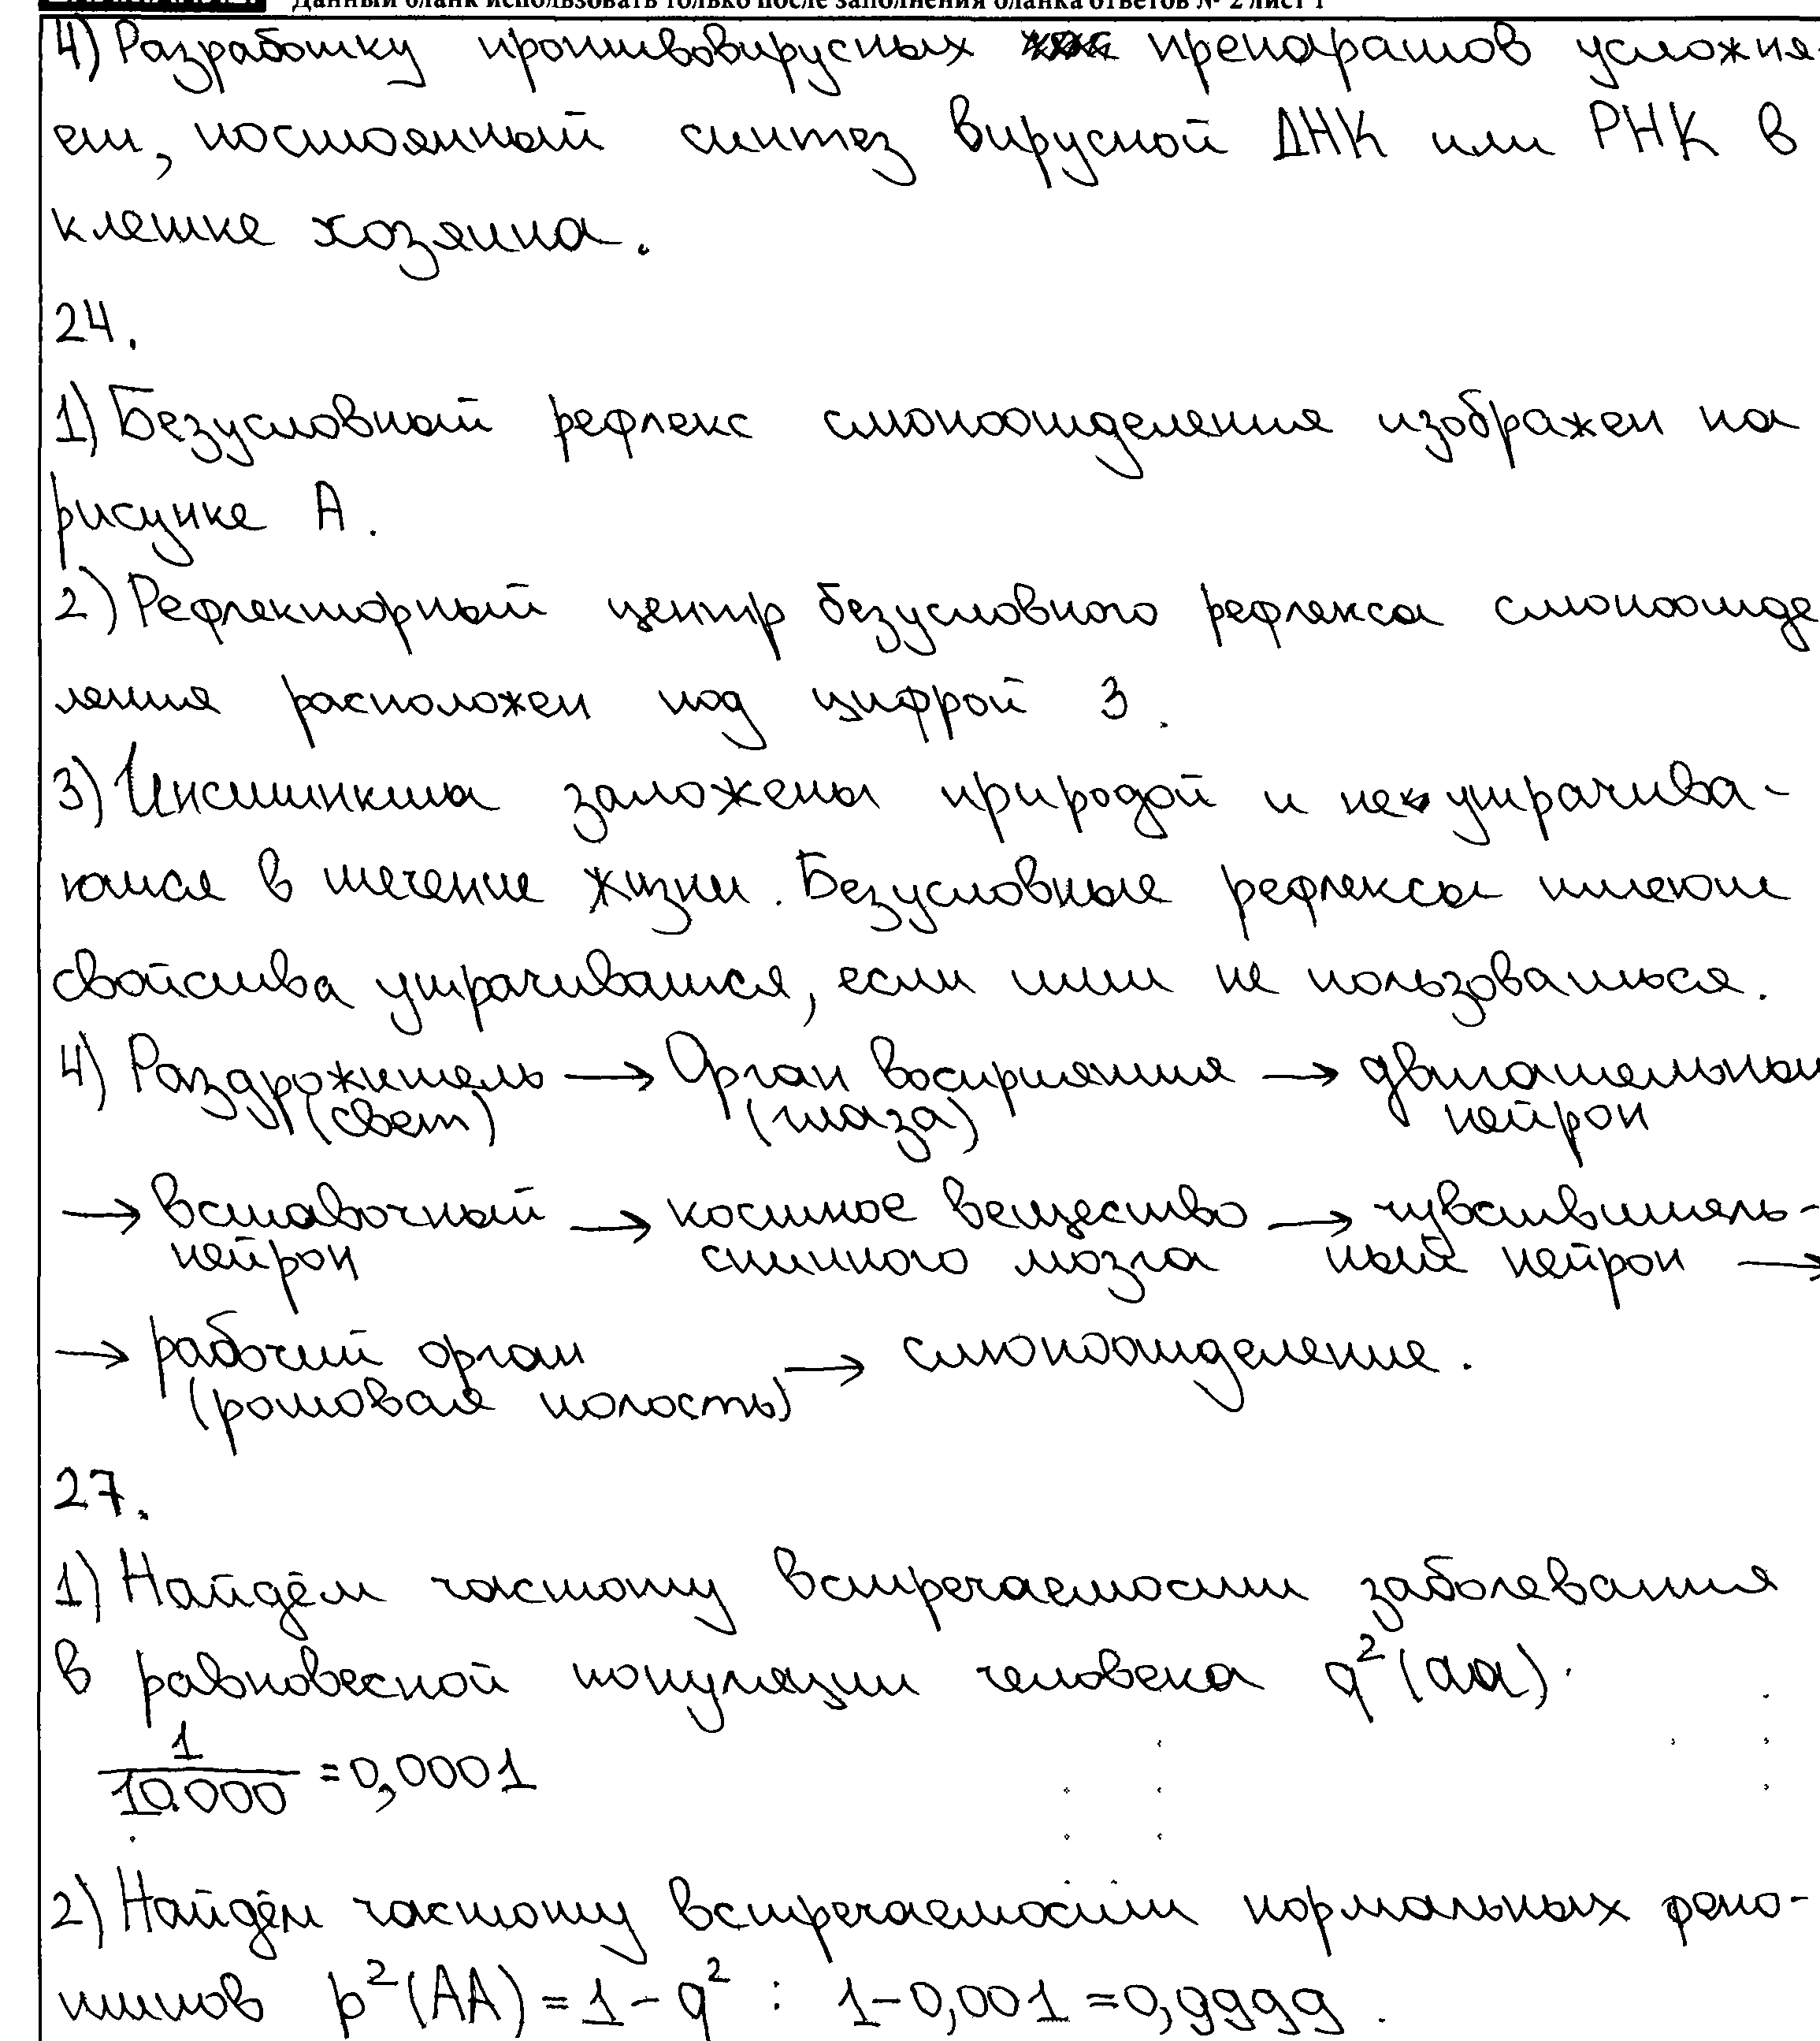 Данный бланк использовать только после заполнения бланка ответов № 2 лист 1
4) Разработку противовирусных препаратов усложня-
ет, постоянный синтез вирусной ДНК или РНК в
клетке хозяина.
24.
1) Безусловный рефлекс слюноотделения изображен на
рисунке А.
2) Рефлекторный центр безусловного рефлекса слюноотде
ления расположен под цифрой 3.
3) Инстинкты заложены природой и не утрачива-
ются в течение жизни. Безусловные рефлексы имеют
свойства утрачиваться, если ими не пользоваться.
4) Раздрожитель → Орган восприятия → двигательный
(свет) (глаза) нейрон
→ вставочный → костное вещество → чувствитель-
нейрон спинного мозга ный нейрон →
→ рабочий орган → слюноотделение.
(ротовая полость)
27.
1) Найдём частоту встречаемости заболевания
в равновесной популяции человека q²(aa).
1
10.000 = 0,0001
2) Найдём частоту встречаемости нормальных фено-
типов p²(AA) = 1 - q² : 1-0,001 = 0,9999.